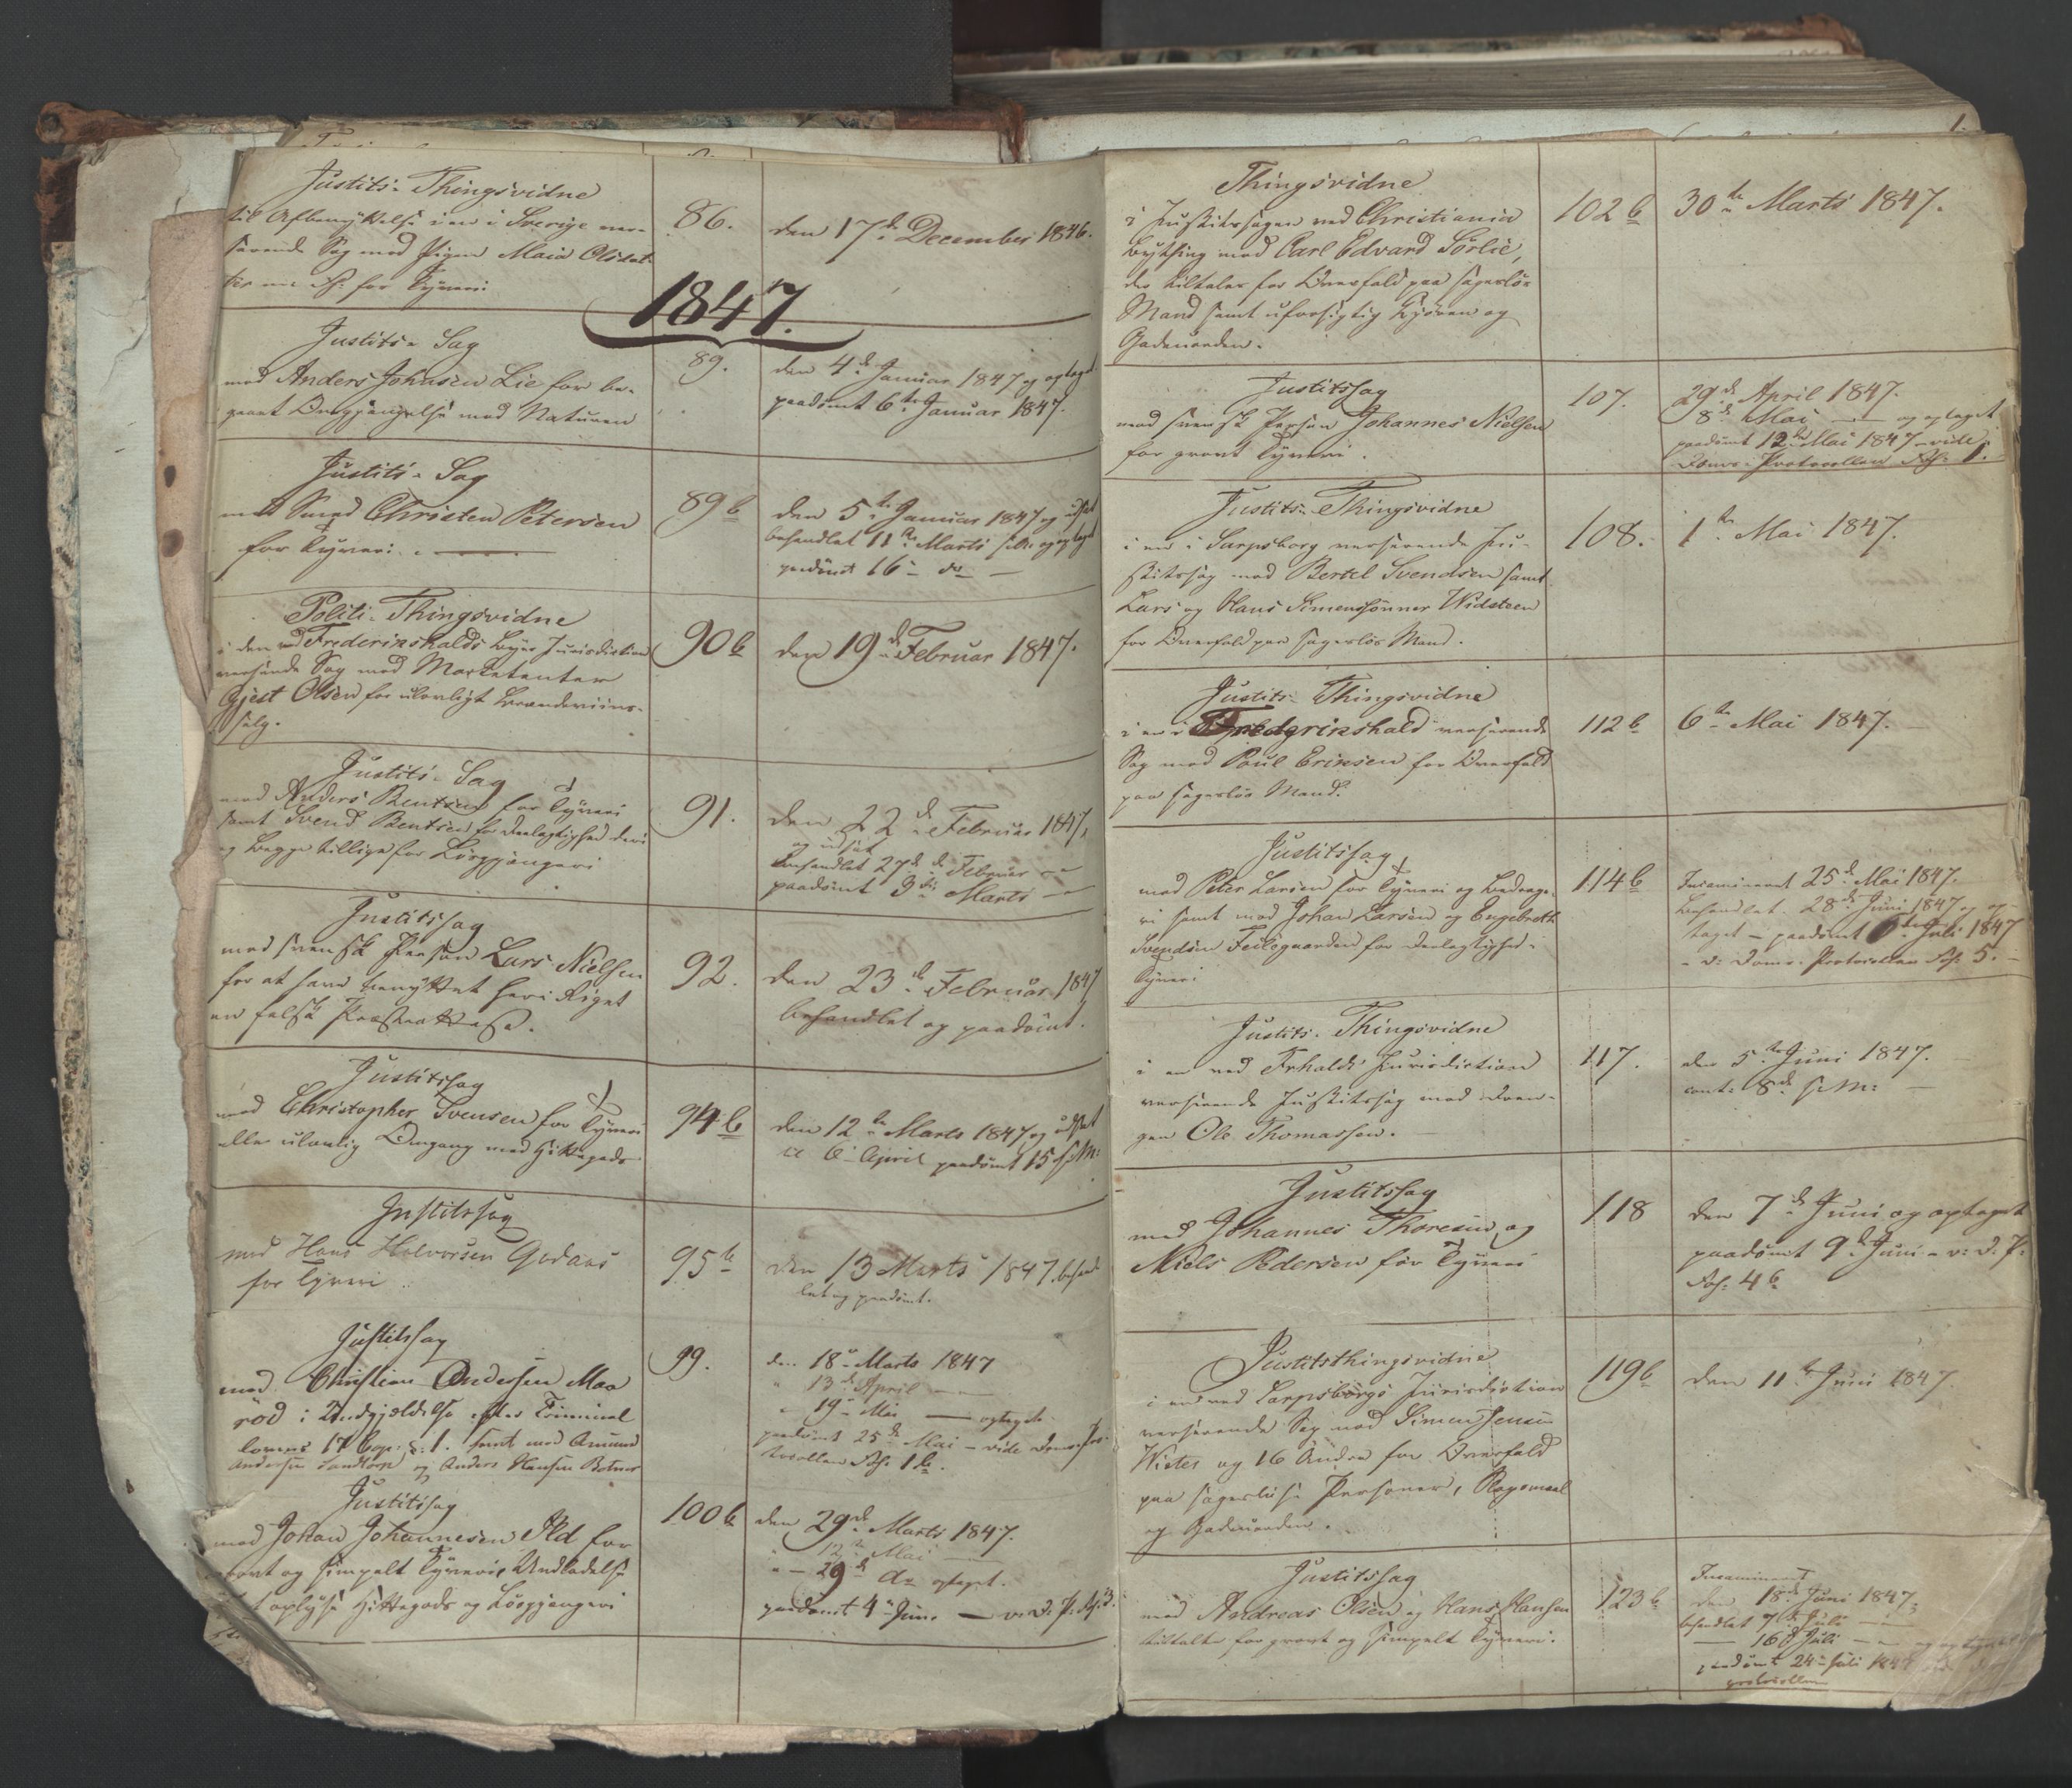 Justits- Thingsvidne
til Afbenyttelse i en i Sverige ver-
serende Sag mod Pigen Maia Olsdat-
ter for Tyveri
86.
den 17de December 1846.
1847.
Justits- Sag
mod Anders Johnsen Lie for be-
gaaet Omgjængelse mod Naturen
89.
den 4de Januar 1847 og optaget
paadømt 6te Januar 1847.
Justits- Sag
mod Smed Christen Petersen
for Tyveri.
89 b
den 5te Januar 1847 og udsat
behandlet 11te Marts s. A. og optaget
paadømt 16 do
Politi- Thingsvidne
i den ved Frederikshalds Byes Jurisdiction
verserende Sag mod Marketenter
Gjest Olsen for ulovligt Brændeviins-
salg.
90 b
den 19de Februar 1847.
Justits- Sag
mod Anders Bentsen for Tyveri
samt Svend Bentsen for Deelagtighed deri
og begge tillige for Løsgjængeri
91.
den 22de Februar 1847,
og udsat
behandlet 27de Februar
paadømt 3die Marts
Justitssag
mod svensk Person Lars Nielsen
for at have benyttet her i Riget
en falsk Præsteattest.
92.
den 23de Februar 1847
behandlet og paadømt.
Justitssag
mod Christopher Svensen for Tyveri
eller ulovlig Omgang med Hittegods
94 b
den 12te Marts 1847 og udsat
til 6 April paadømt 15 s. M:
Justitssag
mod Hans Halvorsen Godaas
for Tyveri
95 b
den 13 Marts 1847. behand
let og paadømt.
Justitssag
mod Christian Andersen Maa
rød i Undgjældelse efter Criminal
lovens 17 Cap. §. 1. samt mod Amund
Andersen Sandtorp og Anders Hansen Botner
99.
den 18 Marts 1847
" 13de April
" 19 Mai — optaget
paadømt 25de Mai – vide Doms-Pro-
tocollen Fol. 1 b.
Justitssag
mod Johan Johannesen Ild for
grovt og simpelt Tyveri, Undladelse
at oplyse Hittegods og Løsgjængeri
100 b
den 29de Marts 1847.
" 12te Mai
" 29de do optaget.
paadømt 4 Juni — v. D. P. Fol. 3.
Thingsvidne
i Justitssagen ved Christiania
Bything mod Carl Edvard Sørlie,
der tiltales for Overfald paa sagesløs
Mand samt uforsigtig Kjøren og
Gadeuorden.
102 b
30te Marts 1847.
Justitssag
mod svensk Person Johannes Nielsen
for grovt Tyveri.
107.
29de April 1847.
8de Mai — og optaget
paadømt 12te Mai 1847 – vide
Doms-Protocollen Fol: 1.
Justits- Thingsvidne
i en i Sarpsborg verserende Ju-
stitssag mod Bertel Svendsen samt
Lars og Hans Simensønner Widsteen
for Overfald paa sagesløs Mand.
108.
1te Mai 1847.
Justits- Thingsvidne
i en i Frederikshald verserende
Sag mod Poul Eriksen for Overfald
paa sagesløs Mand.
112 b
6te Mai 1847.
Justitssag
mod Peter Larsen for Tyveri og Bedrage-
ri samt mod Johan Larsen og Engebreth
Svendsen Feilegaarden for Deelagtighed i
Tyveri
114 b
Incamineret 25de Mai 1847.
Behandlet 28de Juni 1847 og op-
taget – paadømt 6te Juli 1847
– v: Doms-Protocollen Fol. 5.
Justits- Thingsvidne
i en ved Frhalds Jurisdiction
verserende Justitssag mod Dren-
gen Ole Thomassen.
117.
den 5te Juni 1847.
cont: 8de s. M:
Justitssag
mod Johannes Thoresen og
Niels Pedersen for Tyveri
118
den 7de Juni og optaget
paadømt 9de Juni – v: D. P:
Fol: 4 b
Justitsthingsvidne
i en ved Sarpsborgs Jurisdiction
verserende Sag mod Simen Jensen
Wister og 16 Andre for Overfald
paa sagesløse Personer, Slagsmaal
og Gadeuorden.
119 b
den 11te Juni 1847.
Justitssag
mod Andreas Olsen og Hans Hansen
tiltalte for grovt og simpelt Tyveri.
123 b
Incamineret
den 18de Juni 1847.
behandlet 7de Juli
— 16de Juli — og optaget
paadømt 24 Juli 1847
protocollen
1.